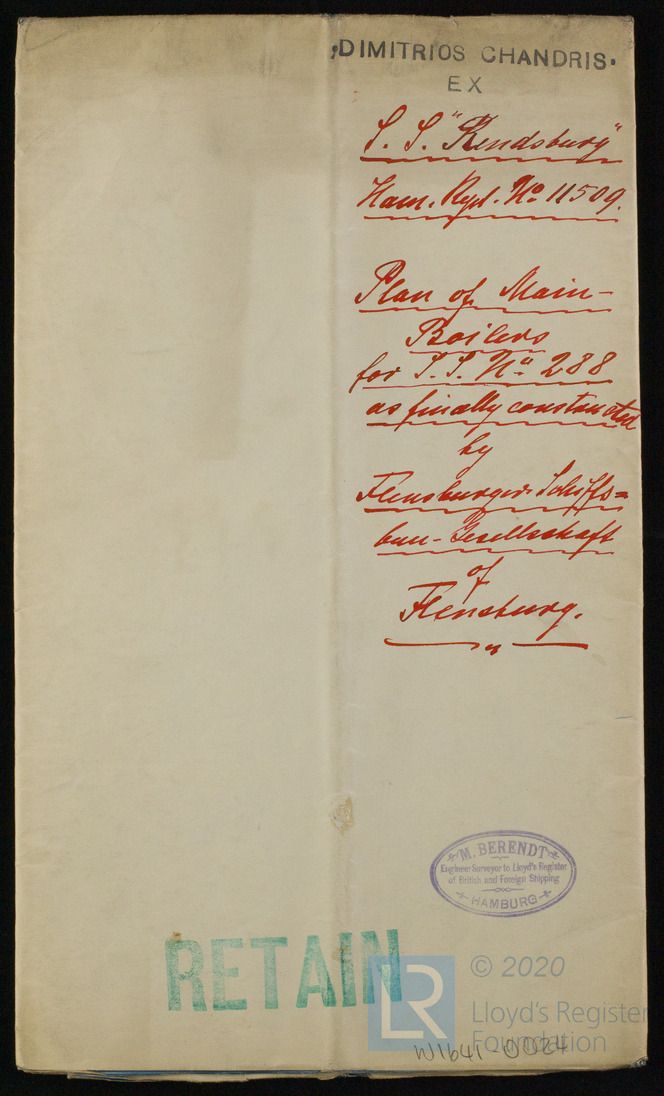 „DIMITRIOS CHANDRIS"
EX
S. S. "Rendsburg"
Ham. Rept. No 11509.
Plan of Main-
Boilers
for S. S. No 288
as finally constructed
by
Flensburger Schiffs=
bau-Gesellschaft
of
Flensburg.
M. BERENDT
Engineer Surveyor to Lloyd's Register
of British and Foreign Shipping
HAMBURG
RETAIN
LR
© 2020
Lloyd's Register
Foundation
W1641-0024